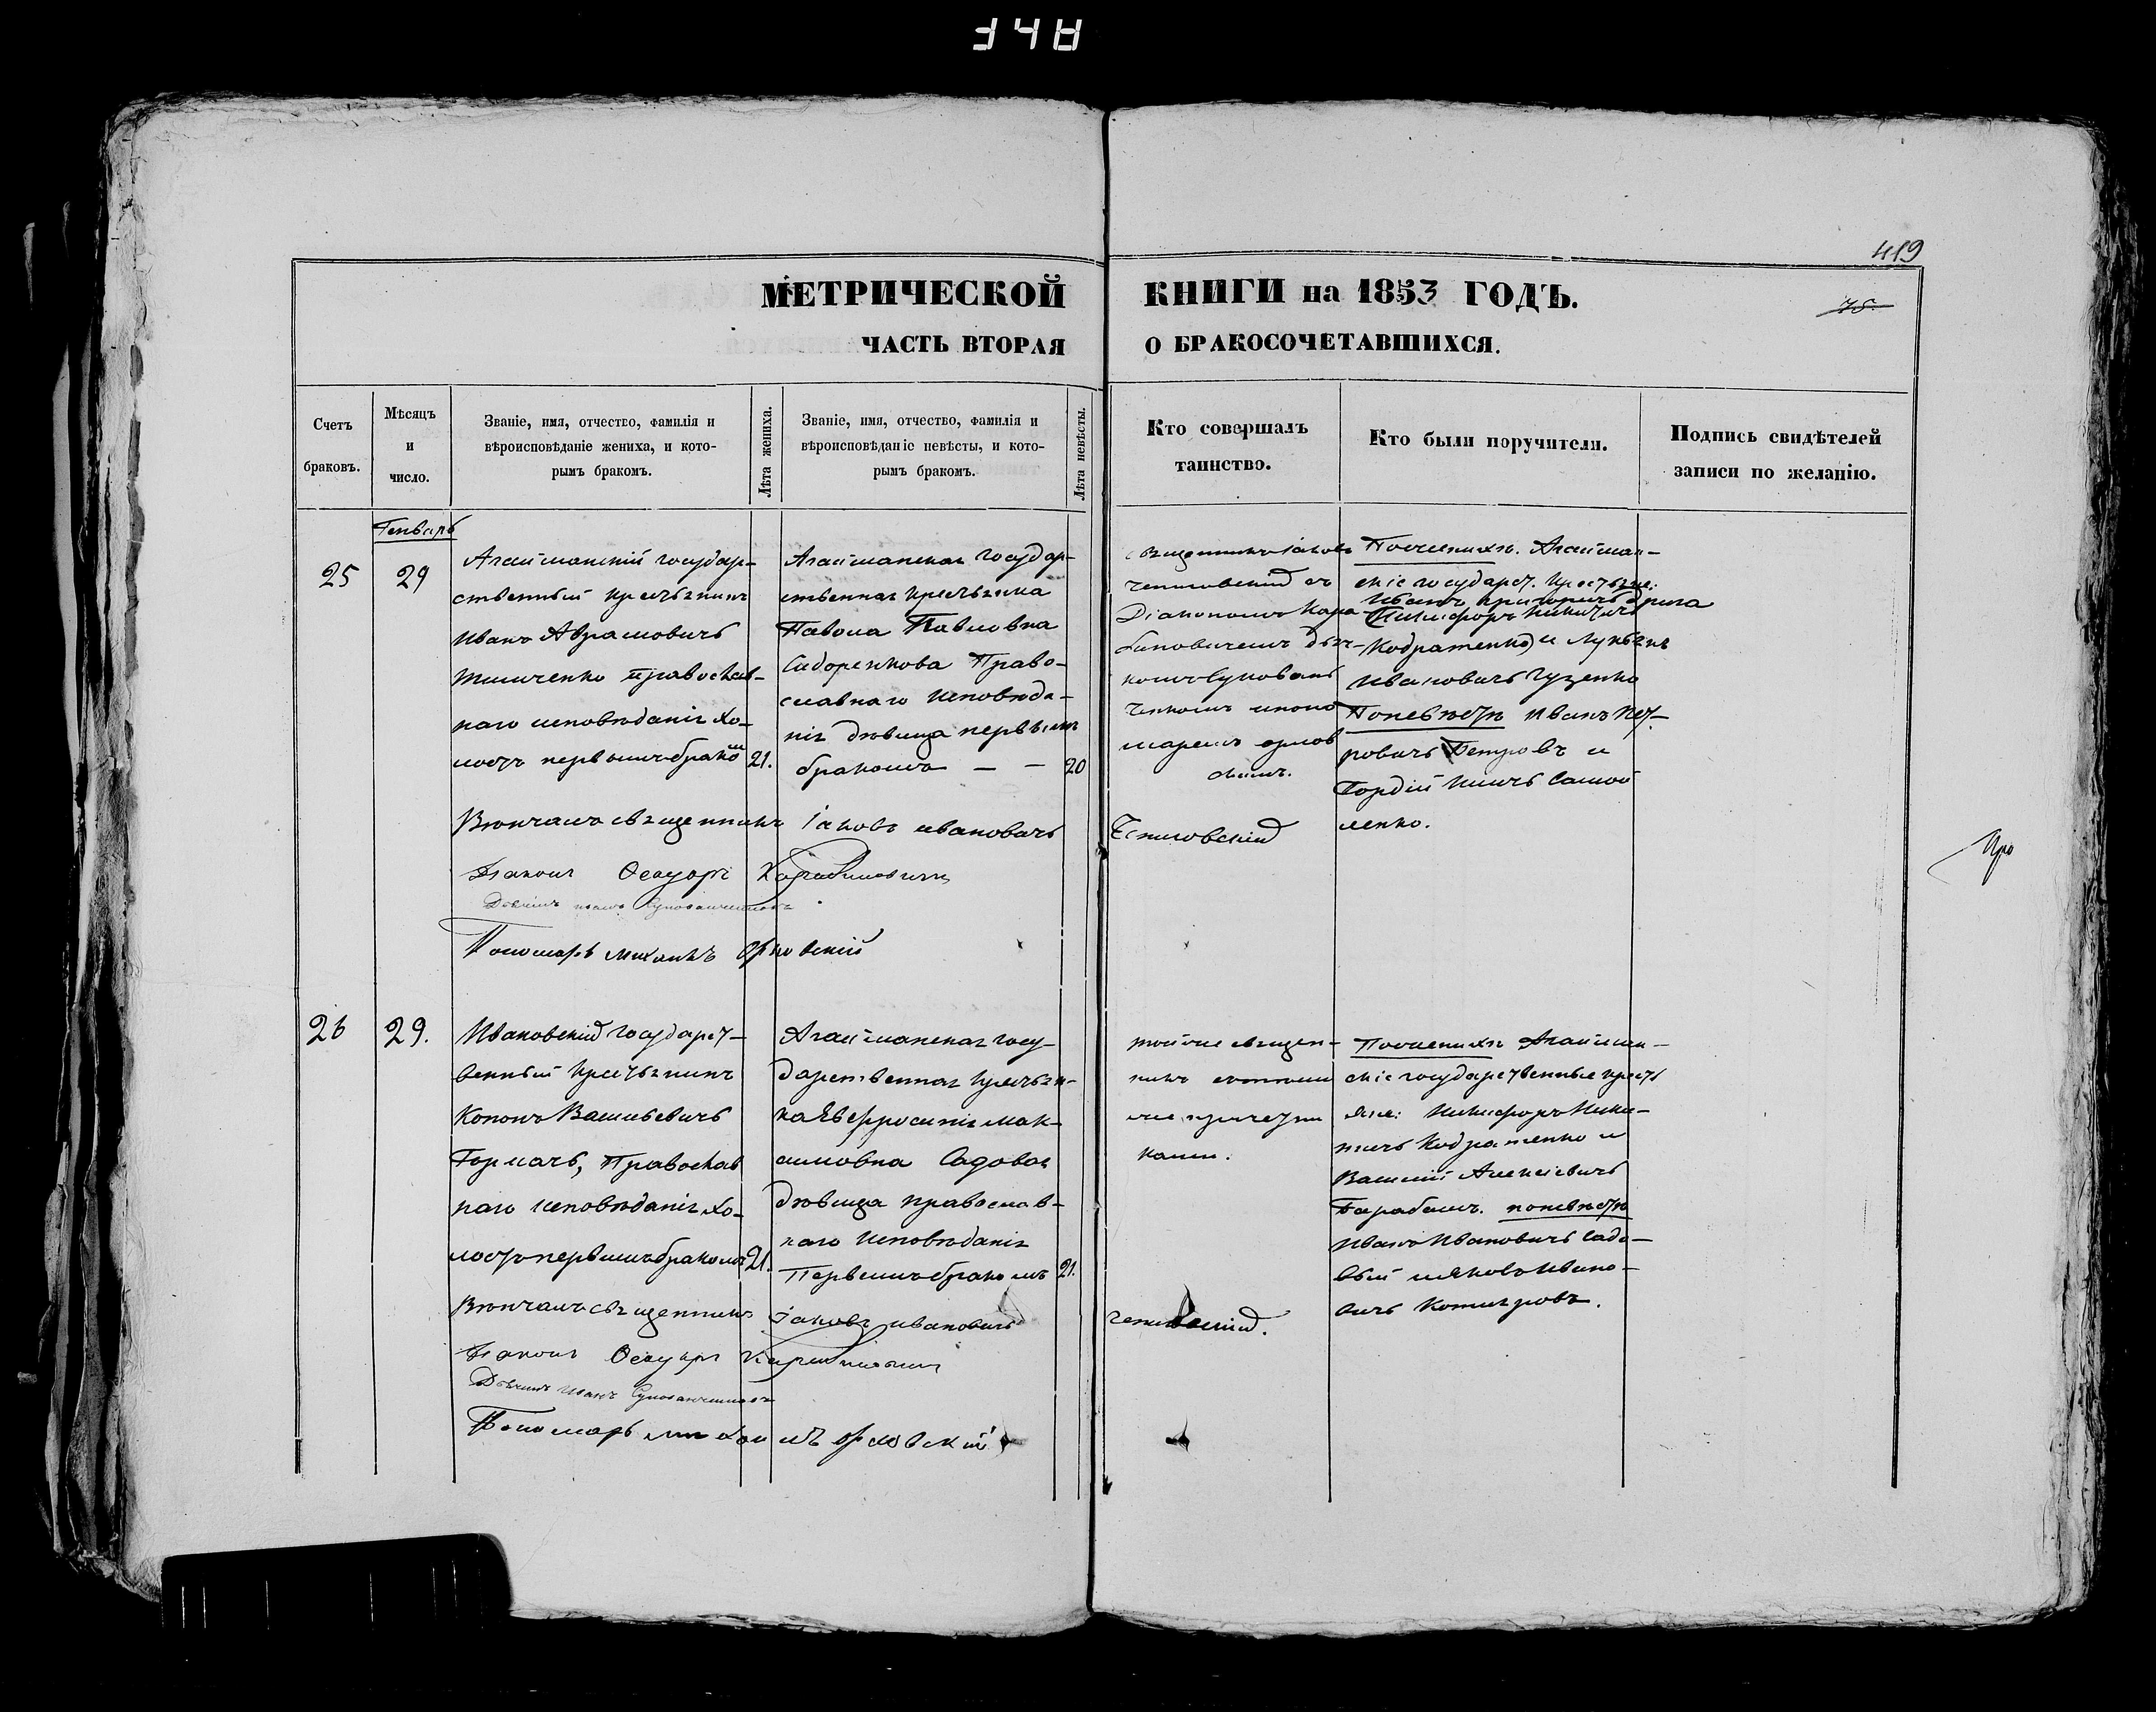 419
МЕТРИЧЕСКОЙ КНИГИ на 1853 ГОДЪ.
75.
ЧАСТЬ ВТОРАЯ О БРАКОСОЧЕТАВШИХСЯ.
Счетъ браковъ.
Мѣсяцъ и число.
Званіе, имя, отчество, фамилія и
вѣроисповѣданіе жениха, и кото-
рымъ бракомъ.
Лѣта жениха.
Званіе, имя, отчество, фамилія и
вѣроисповѣданіе невѣсты, и кото-
рымъ бракомъ.
Лѣта невѣсты.
Кто совершалъ
таинство.
Кто были поручители.
Подпись свидѣтелей
записи по желанію.
Генварь
25
29
Агайманскій государ-
ственный крестьянинъ
Иванъ Аврамовичъ
православ-
наго исповѣданія хо-
лостъ первымъ бракомъ
21.
Агайманская государ-
ственная крестьянка
Павловна
Сидоренкова Право-
славнаго исповѣда-
нія дѣвица первымъ
бракомъ — —
20
священникъ Іаковъ
съ
Діакономъ Кара-
биновичемъ дьяч-
комъ
орлов
скимъ.
По женихѣ. Агайман-
скіе государст. крестьяне:
Никифоръ Никитичъ
Кодратенко и Лукьянъ
Ивановичъ Гузенко
По невѣстѣ Иванъ Пет-
ровичъ Петровъ и
Гордій Самой
ленко.
Вѣнчалъ священникъ Іаковъ Ивановичъ
Діаконъ Ѳеодоръ Карабиновичъ
Пономарь Михаилъ Орловскій
26
29.
Ивановскій государст-
венный крестьянинъ
Кононъ Васильевичъ
Горлачъ, Православ
наго исповѣданія хо-
лостъ первымъ бракомъ
21.
Агайманская госу-
дарственная крестьян-
ка Евфросинія Мак-
симовна Садовая
дѣвица православ-
наго исповѣданія
Первымъ бракомъ
21.
тойже священ-
никъ стѣми
же причетни
ками.
По женихѣ Агайман-
скіе государственные кресть
яне: Никифоръ Ники-
тичъ Кодратенко и
Василій Алексіевичъ
Барабашъ. по невѣстѣ
Иванъ Ивановичъ Садо-
вый и Яковъ Ивано-
вичъ
Вѣнчалъ священникъ Іаковъ Ивановичъ
Діаконъ Ѳеодоръ Карабиновичъ
Дьячекъ Иванъ
Пономарь Михаилъ Орловскій